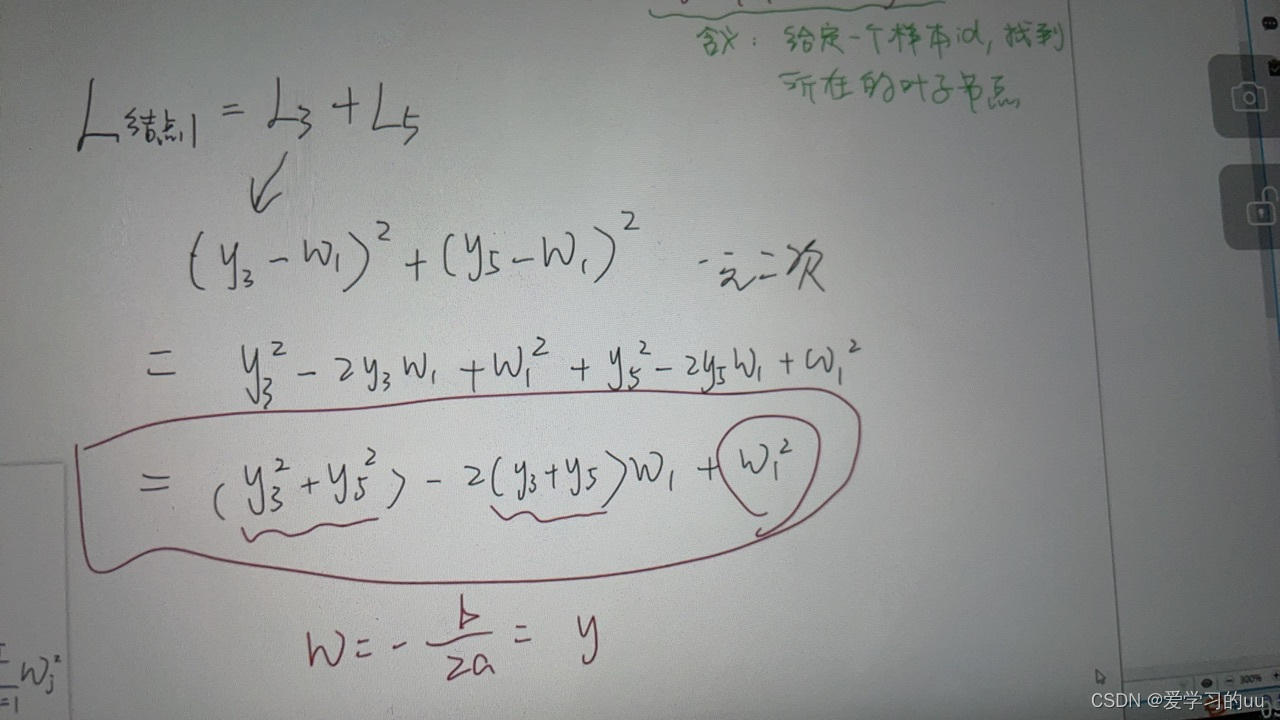 含义：给定一个样本id，找到
所在的叶子节点
L结点1 = L₃ + L₅
(y₃ - w₁)² + (y₅ - w₁)² 一元二次
= y₃² - 2y₃w₁ + w₁² + y₅² - 2y₅w₁ + w₁²
= (y₃² + y₅²) - 2(y₃+y₅)w₁ + w₁²
w = - b/2a = y
=1 wⱼ²
300%
CSDN @爱学习的uu